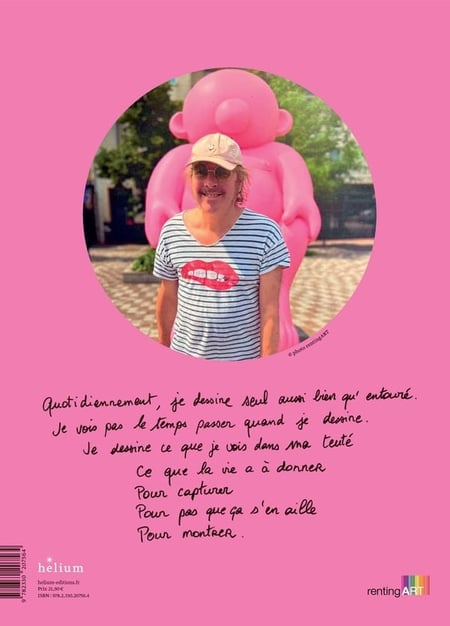 © photo rentingART
Quotidiennement, je dessine seul aussi bien qu'entouré.
Je vois pas le temps passer quand je dessine.
Je dessine ce que je vois dans ma teuté
Ce que la vie a à donner
Pour capturer
Pour pas que ça s'en aille
Pour montrer.
9 782330 207564
helium
helium-editions.fr
Prix 21,90€
ISBN : 978.2.330.20756.4
rentingART